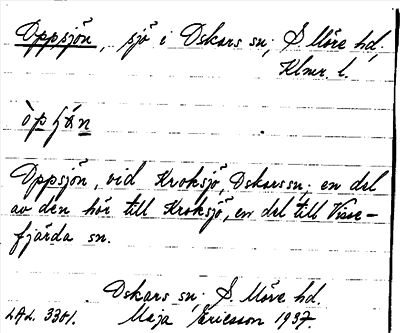 Oppsjön, sjö i Oskars sn; S. Möre hd,
Klmr. l.
Oppsjön, vid Kroksjö, Oskars sn; en del
av den hör till Kroksjö, en del till Visse-
fjärda sn.
Oskars sn; S. Möre hd.
LAL. 3301. Maja Ericsson 1937